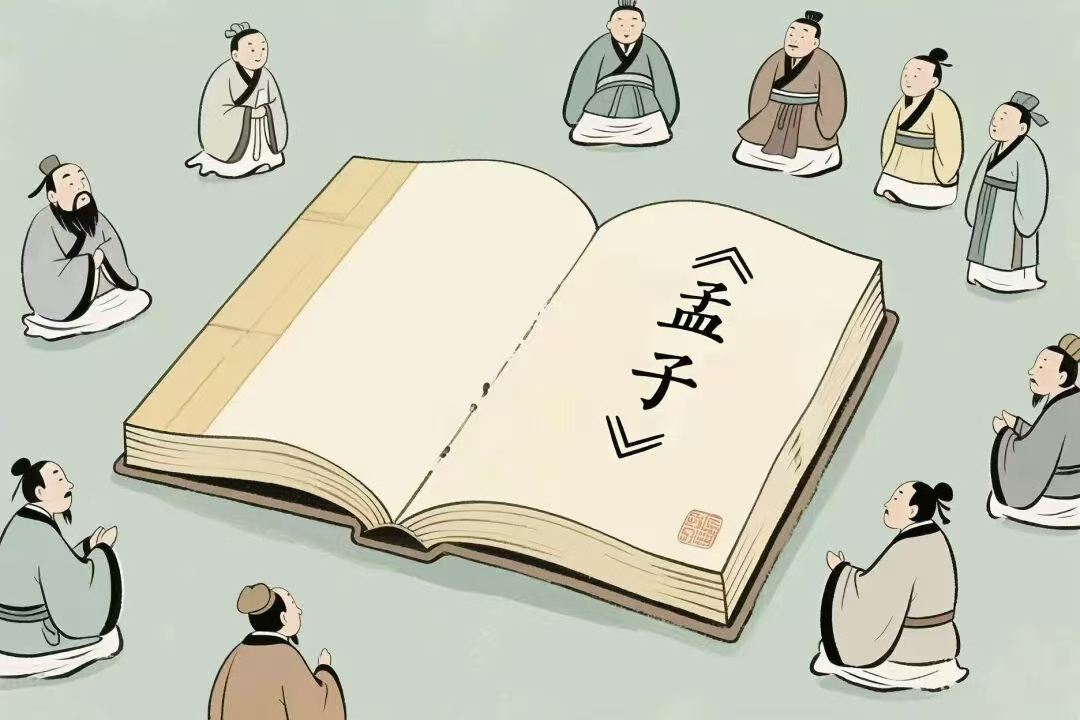 《孟子》